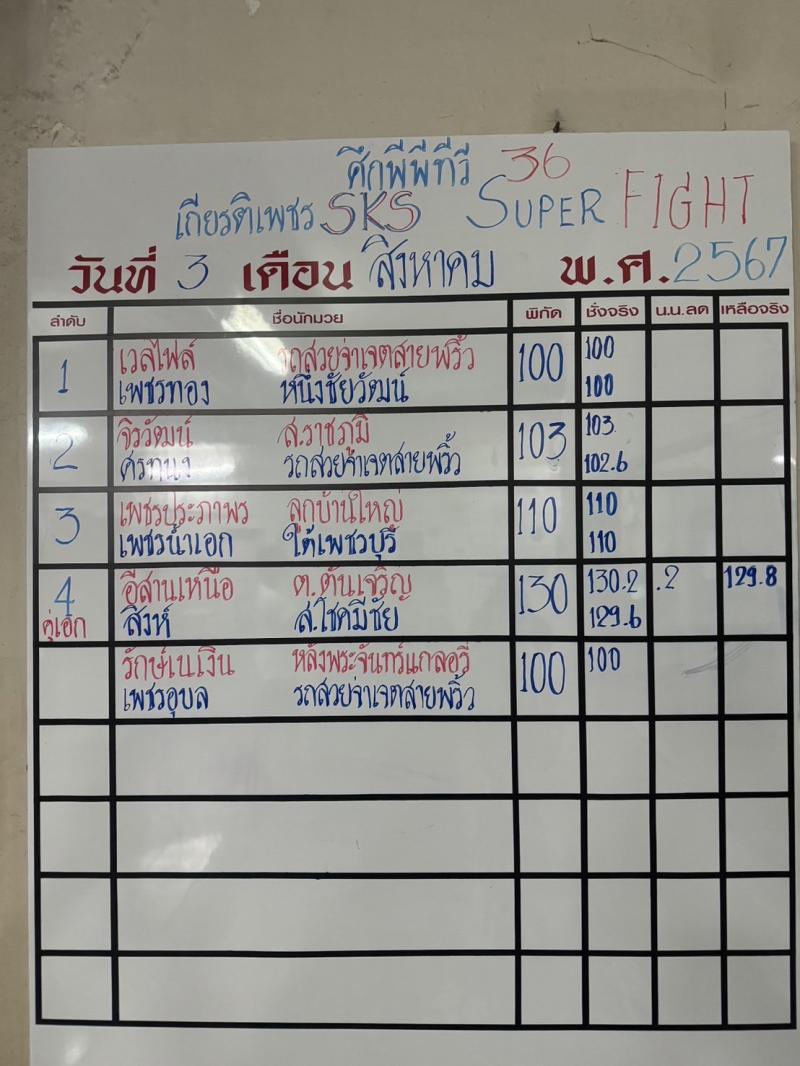 ศึกพีพีทีวี 36
เกียรติเพชร SKS SUPER FIGHT
วันที่ 3 เดือน สิงหาคม พ.ศ. 2567
ลำดับ ชื่อนักมวย พิกัด ชั่งจริง น.น.ลด เหลือจริง
1 เวลไฟล์ รถสวยจ่าเจตสายพริ้ว 100 100
เพชรทอง หนึ่งชัยวัฒน์ 100
2 จิรวัฒน์ ส.ราชภูมิ 103 103
ศรทนง รถสวยจ่าเจตสายพริ้ว 102.6
3 เพชรประภาพร ลูกบ้านใหญ่ 110 110
เพชรน้ำเอก ใต้เพชรบุรี 110
4 อีสานเหนือ ต.ตันเจริญ 130 130.2 .2 129.8
คู่เอก สิงห์ ส.โชคมีชัย 129.6
รักษ์เนเงิน หลังพระจันทร์แกลอรี่ 100 100
เพชรอุบล รถสวยจ่าเจตสายพริ้ว